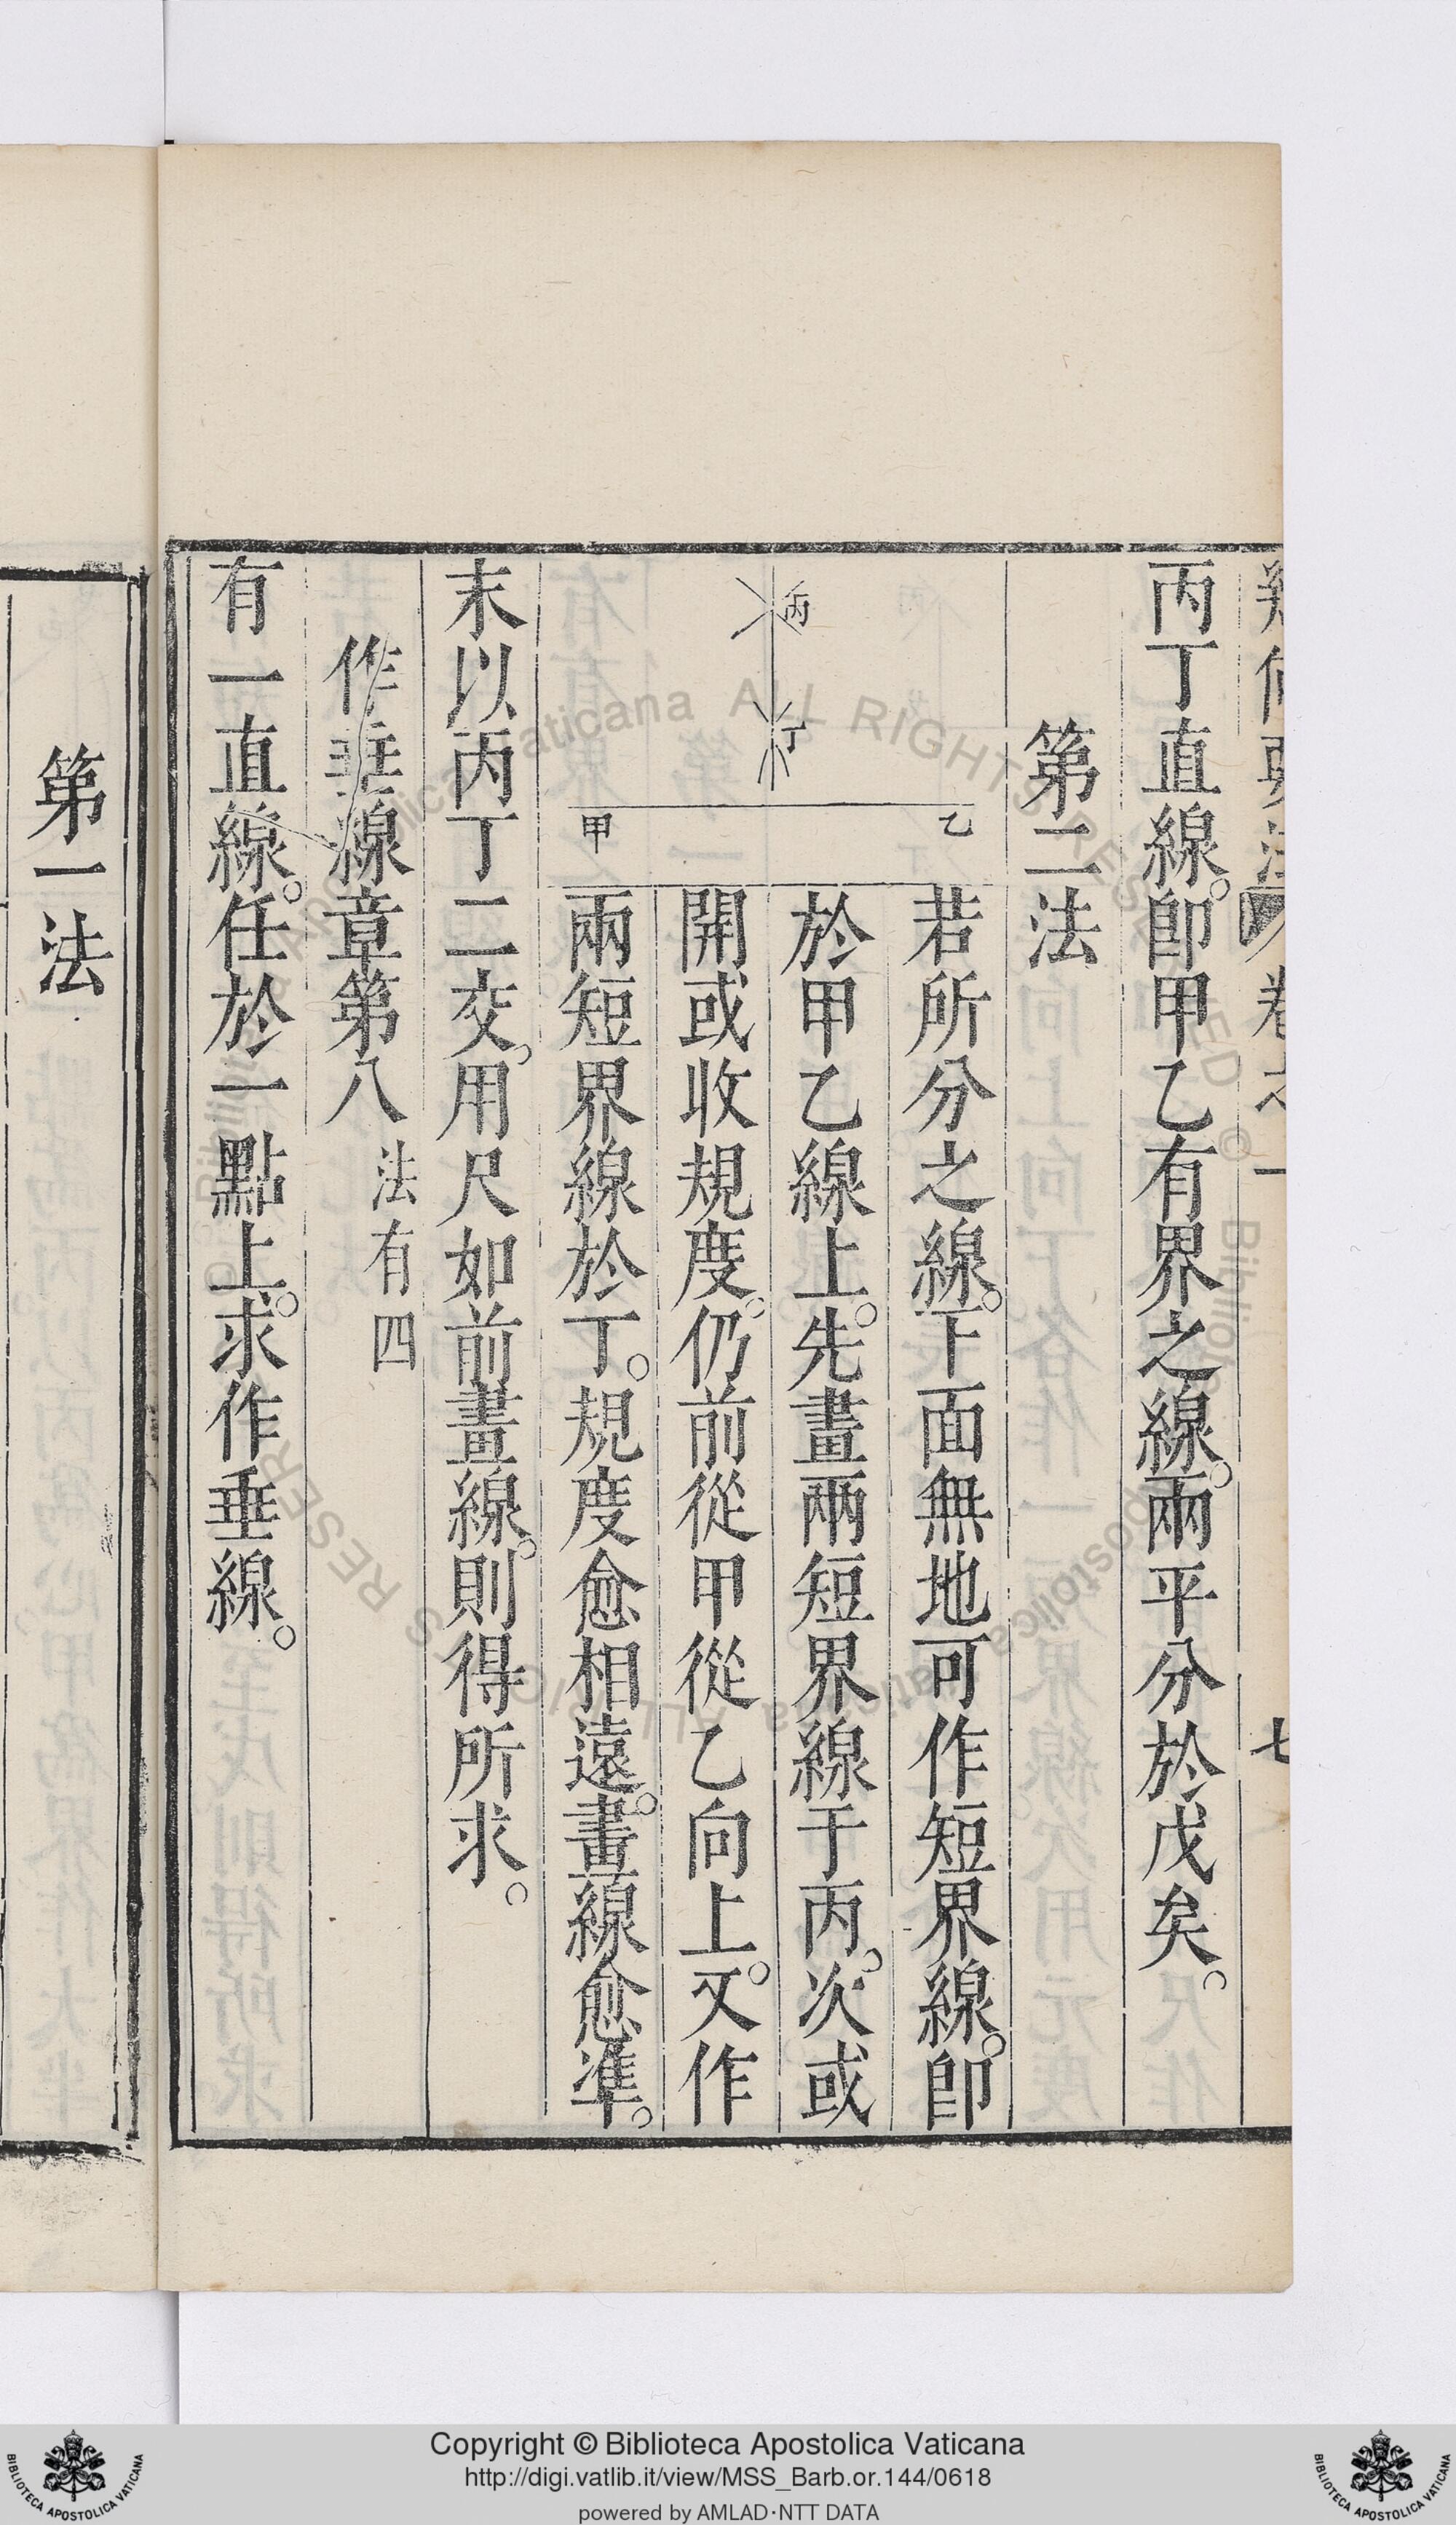 丙丁直線。卽甲乙有界之線。兩平分於戊矣。
第二法
丙
丁
乙
甲
若所分之線。下面無地可作短界線。卽
於甲乙線上。先畫兩短界線于丙。次或
開或收規度。仍前從甲從乙向上。又作
兩短界線於丁。規度愈相遠。畫線愈準。
末以丙丁二交。用尺如前畫線。則得所求。
作垂線章第八 法有四
有一直線。任於一點上。求作垂線。
第一法
七
Copyright © Biblioteca Apostolica Vaticana
http://digi.vatlib.it/view/MSS_Barb.or.144/0618
powered by AMLAD·NTT DATA
BIBLIOTECA APOSTOLICA VATICANA
BIBLIOTECA APOSTOLICA VATICANA